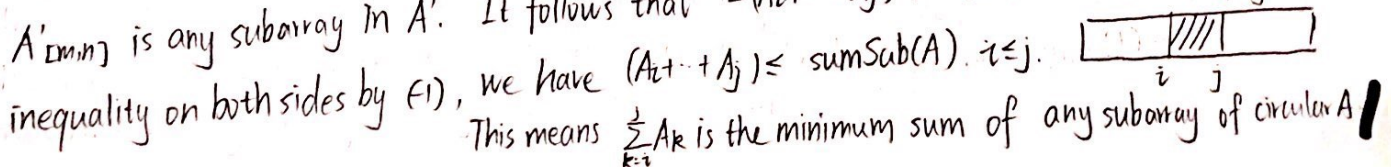 A'[m,n] is any subarray in A'. It follows that
inequality on both sides by (-1), we have (Ai+··+Aj)≤ sumSub(A). i≤j.
i j
This means Σ_{k=i}^{j} Ak is the minimum sum of any subarray of circular A